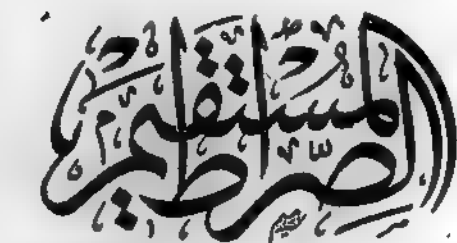 الصرٰط المستقيم